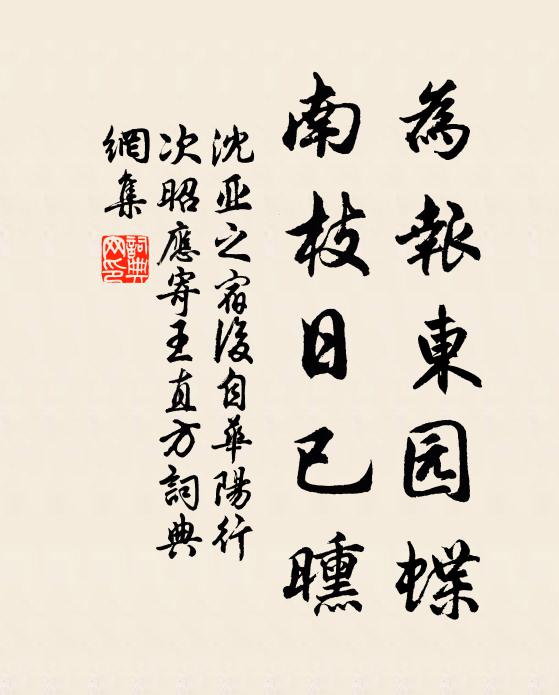 為報東园蝶
南枝日已曛
沈亚之宿後自華陽行
次昭應寄王直方詞典
網集
詞典网印